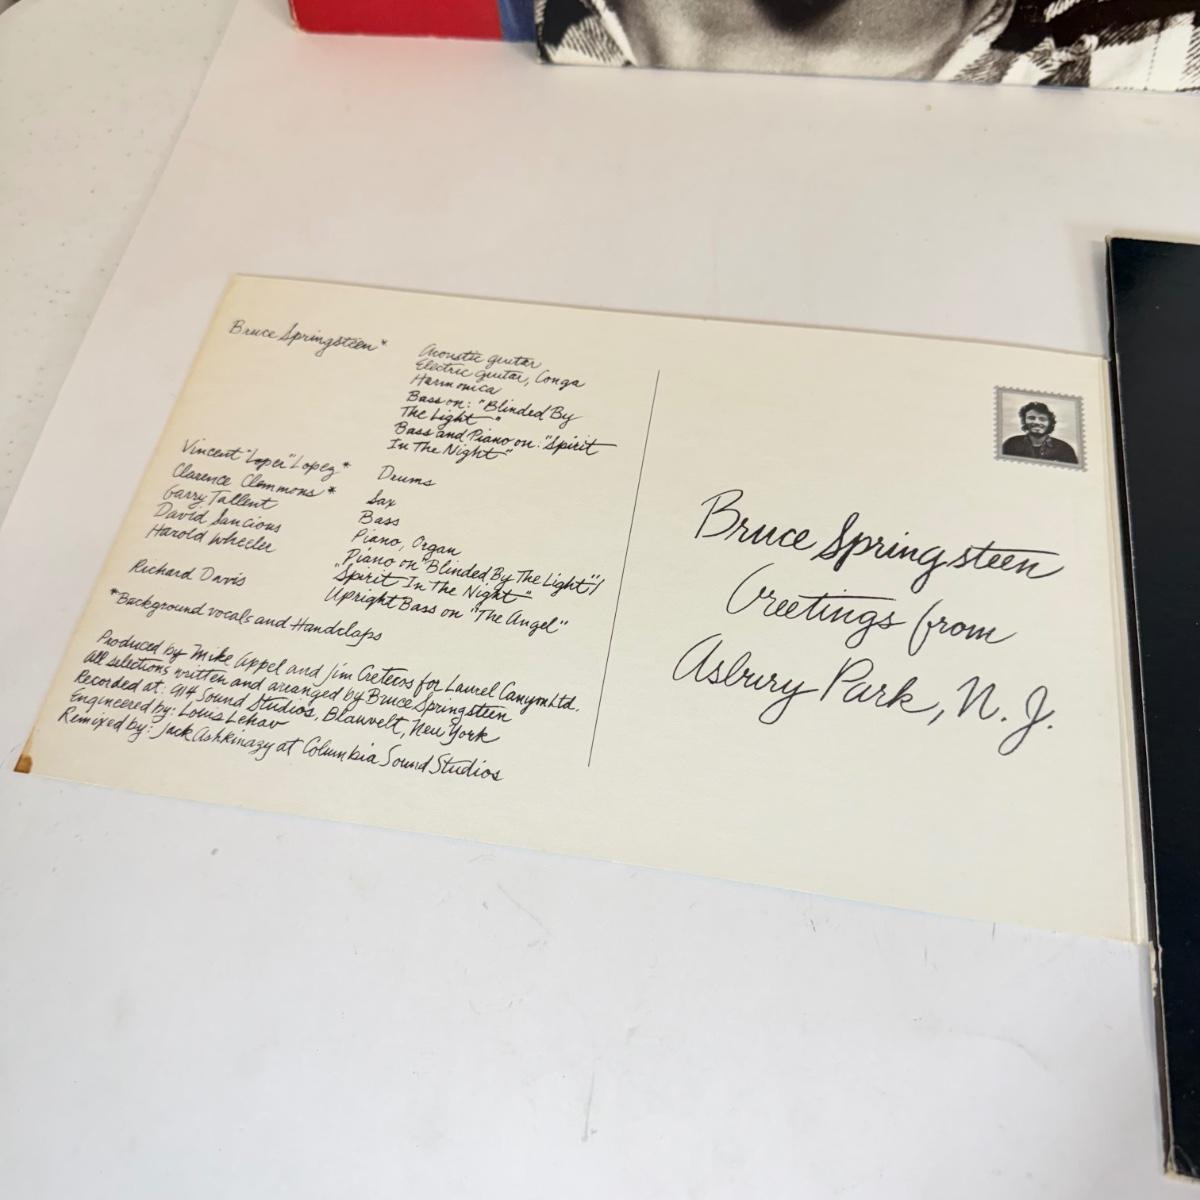 Bruce Springsteen*
Acoustic guitar
Electric guitar, Conga
Harmonica
Bass on: "Blinded By
The Light"
Bass and Piano on: "Spirit
In The Night"
Vincent "Loper" Lopez* Drums
Clarence Clemmons* Sax
Garry Tallent Bass
David Sancious Piano, Organ
Harold Wheeler Piano on "Blinded By The Light"/
"Spirit In The Night"
Richard Davis Upright Bass on "The Angel"
*Background vocals and Handclaps
Produced by Mike Appel and Jim Cretecos for Laurel Canyon Ltd.
All selections written and arranged by Bruce Springsteen
Recorded at: 914 Sound Studios, Blauvelt, New York
Engineered by: Louis Lehav
Remixed by: Jack Ashkinazy at Columbia Sound Studios
Bruce Springsteen
Greetings from
Asbury Park, N.J.